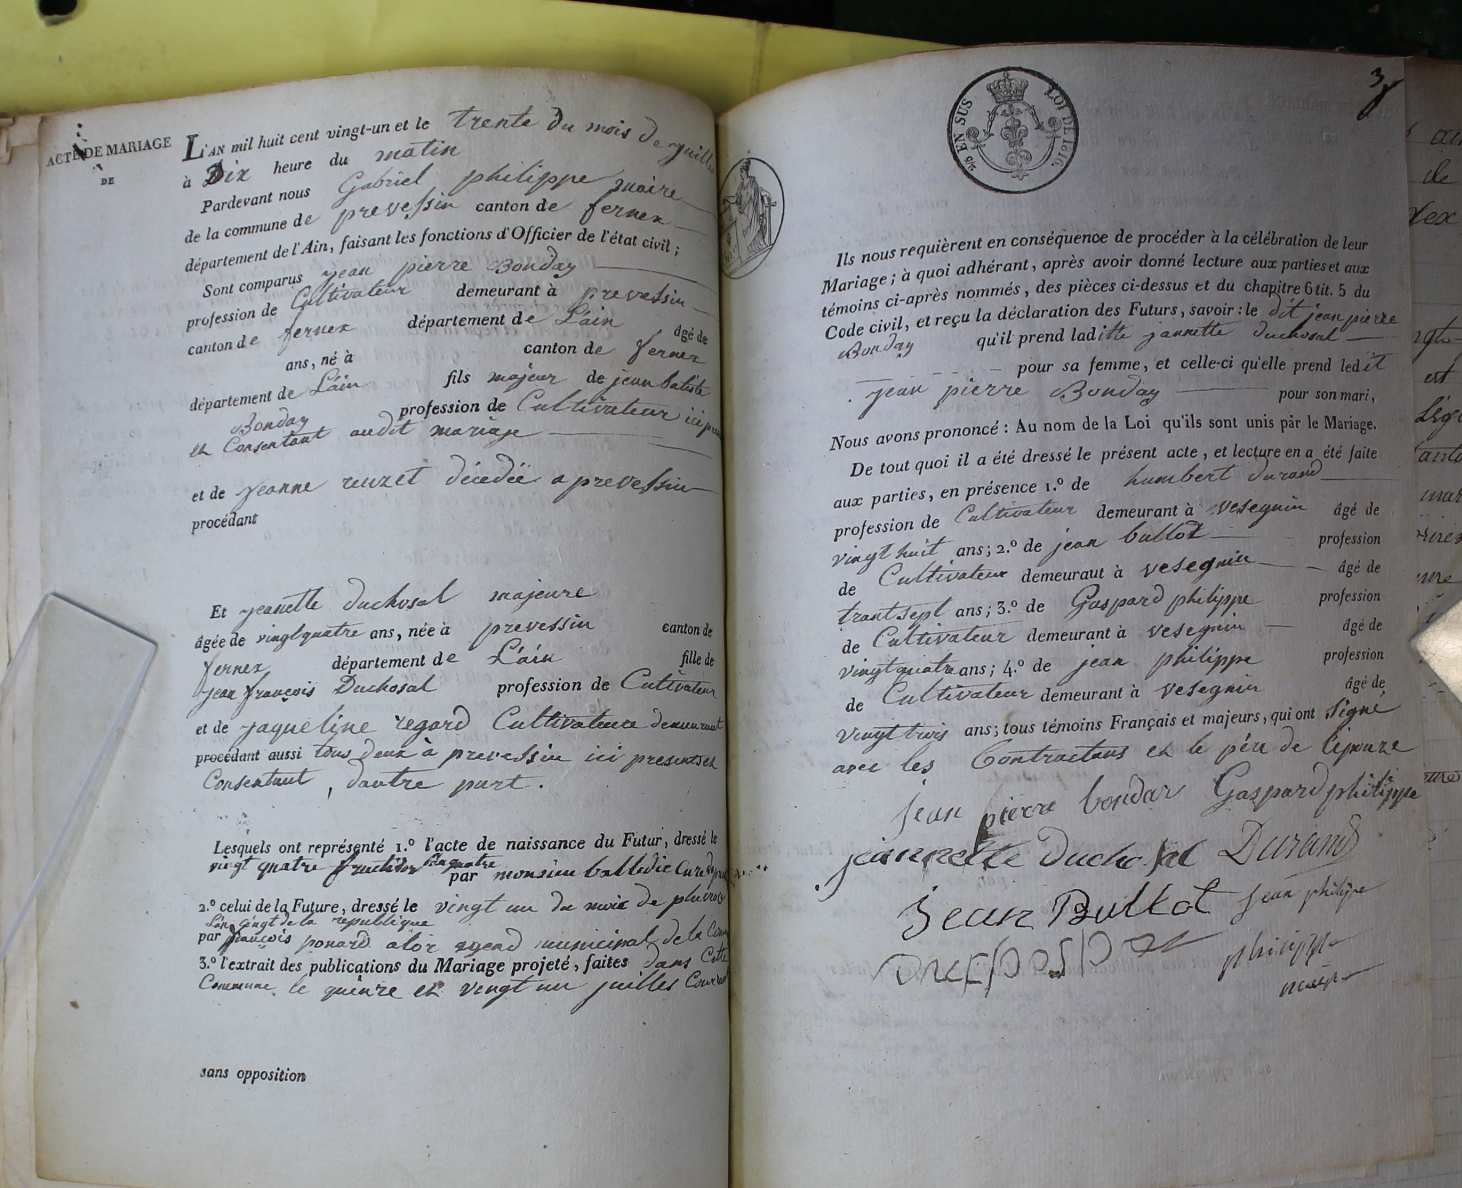 ACTE DE MARIAGE
DE
L'AN mil huit cent vingt-un et le trente du mois de juillet
à Dix heure du matin
Pardevant nous Gabriel philippe maire
de la commune de prevessin canton de fernex
département de l'Ain, faisant les fonctions d'Officier de l'état civil;
Sont comparus jean pierre Bonday
profession de Cultivateur demeurant à prevessin
canton de fernex département de L'ain âgé de
ans, né à canton de fernex
département de L'ain fils majeur de jean batiste
Bonday profession de Cultivateur ici
et Consentant audit mariage
et de jeanne décédée a prevessin
procédant
Et jeanette duchosal majeure
âgée de vingtquatre ans, née à prevessin canton de
fernex département de L'ain fille de
jean françois Duchosal profession de Cultivateur
et de jaqueline regard Cultivateuce demeurant
procédant aussi tous deux à prevessin ici presents et
Consentant, dautre part.
Lesquels ont représenté 1.º l'acte de naissance du Futur, dressé le
vingt quatre fructidor par monsieur
2.º celui de la Future, dressé le vingt un du mois de pluviose
L'an cingt de la republique
par françois ponard alor agend municipal de la
3.º l'extrait des publications du Mariage projeté, faites dans Cette
Commune le quinre et vingt un juilles Courant
sans opposition
3
EN SUS
LOI DE 1816
Ils nous requièrent en conséquence de procéder à la célébration de leur
Mariage; à quoi adhérant, après avoir donné lecture aux parties et aux
témoins ci-après nommés, des pièces ci-dessus et du chapitre 6 tit. 5 du
Code civil, et reçu la déclaration des Futurs, savoir: le dit jean pierre
Bonday qu'il prend laditte jannette duchosal
pour sa femme, et celle-ci qu'elle prend ledit
jean pierre Bonday pour son mari,
Nous avons prononcé: Au nom de la Loi qu'ils sont unis par le Mariage.
De tout quoi il a été dressé le présent acte, et lecture en a été faite
aux parties, en présence 1.º de humbert durand
profession de Cultivateur demeurant à vesegnin âgé de
vingt huit ans; 2.º de jean bullot profession
de Cultivateur demeuraut à vesegnin âgé de
trantsept ans; 3.º de Gaspard philippe profession
de Cultivateur demeurant à vesegnin âgé de
vingtquatre ans; 4.º de jean philippe profession
de Cultivateur demeurant à vesegnin âgé de
vingt trois ans; tous témoins Français et majeurs, qui ont signé
avec les Contractans et le père de lepouze
jean pierre bondar Gaspard philippe
jeannette duchosal Durand
jean Bullot jean philipe
philippe
maire